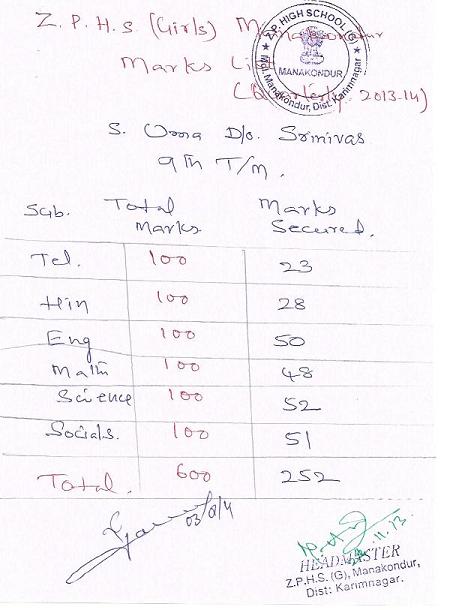 Z.P.H.S (Girls) Manakondur
Marks List
(Quarterly 2013-14)
Z.P. HIGH SCHOOL (G)
MANAKONDUR
Mdl. Manakondur, Dist: Karimnagar
S. Uma D/o. Srinivas
9th T/M.
Sub. Total Marks Marks Secured.
Tel. 100 23
Hin 100 28
Eng 100 50
Math 100 48
Science 100 52
Socials. 100 51
Total. 600 252
HEADMASTER
Z.P.H.S. (G), Manakondur,
Dist: Karimnagar.